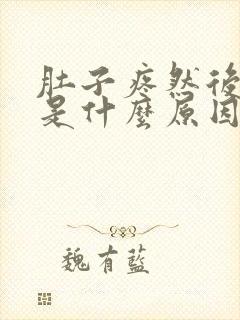 肚子疼然後
是什麼原因
魏有藍